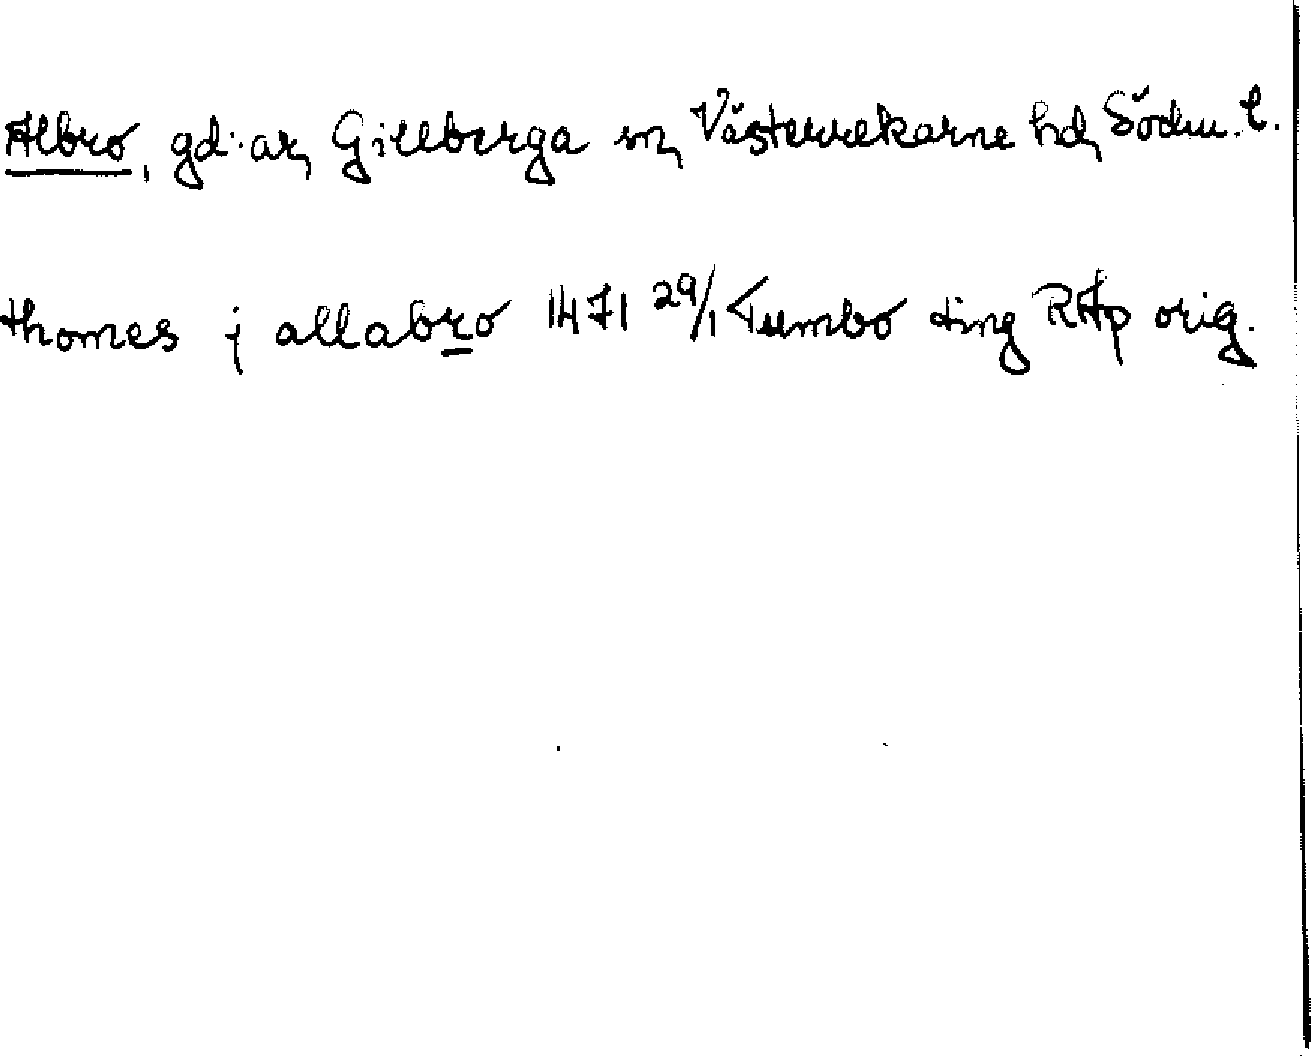 Albro, gd:ar, Gillberga sn, Västerrekarne hd, Södm. l.
thomes j allabro 1471 29/1 Tumbo ting RAp orig.